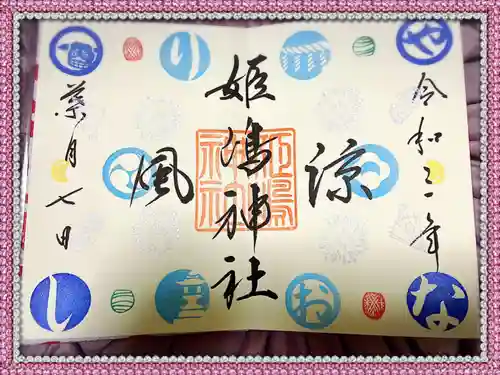 やり
なおし
令和三年
涼風
姫嶋神社
姫嶋神社
葉月七日